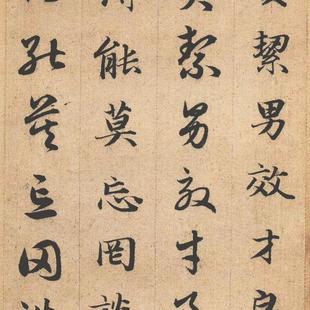 絜男效才良
絜男效才
能莫忘罔談
能莫忘罔